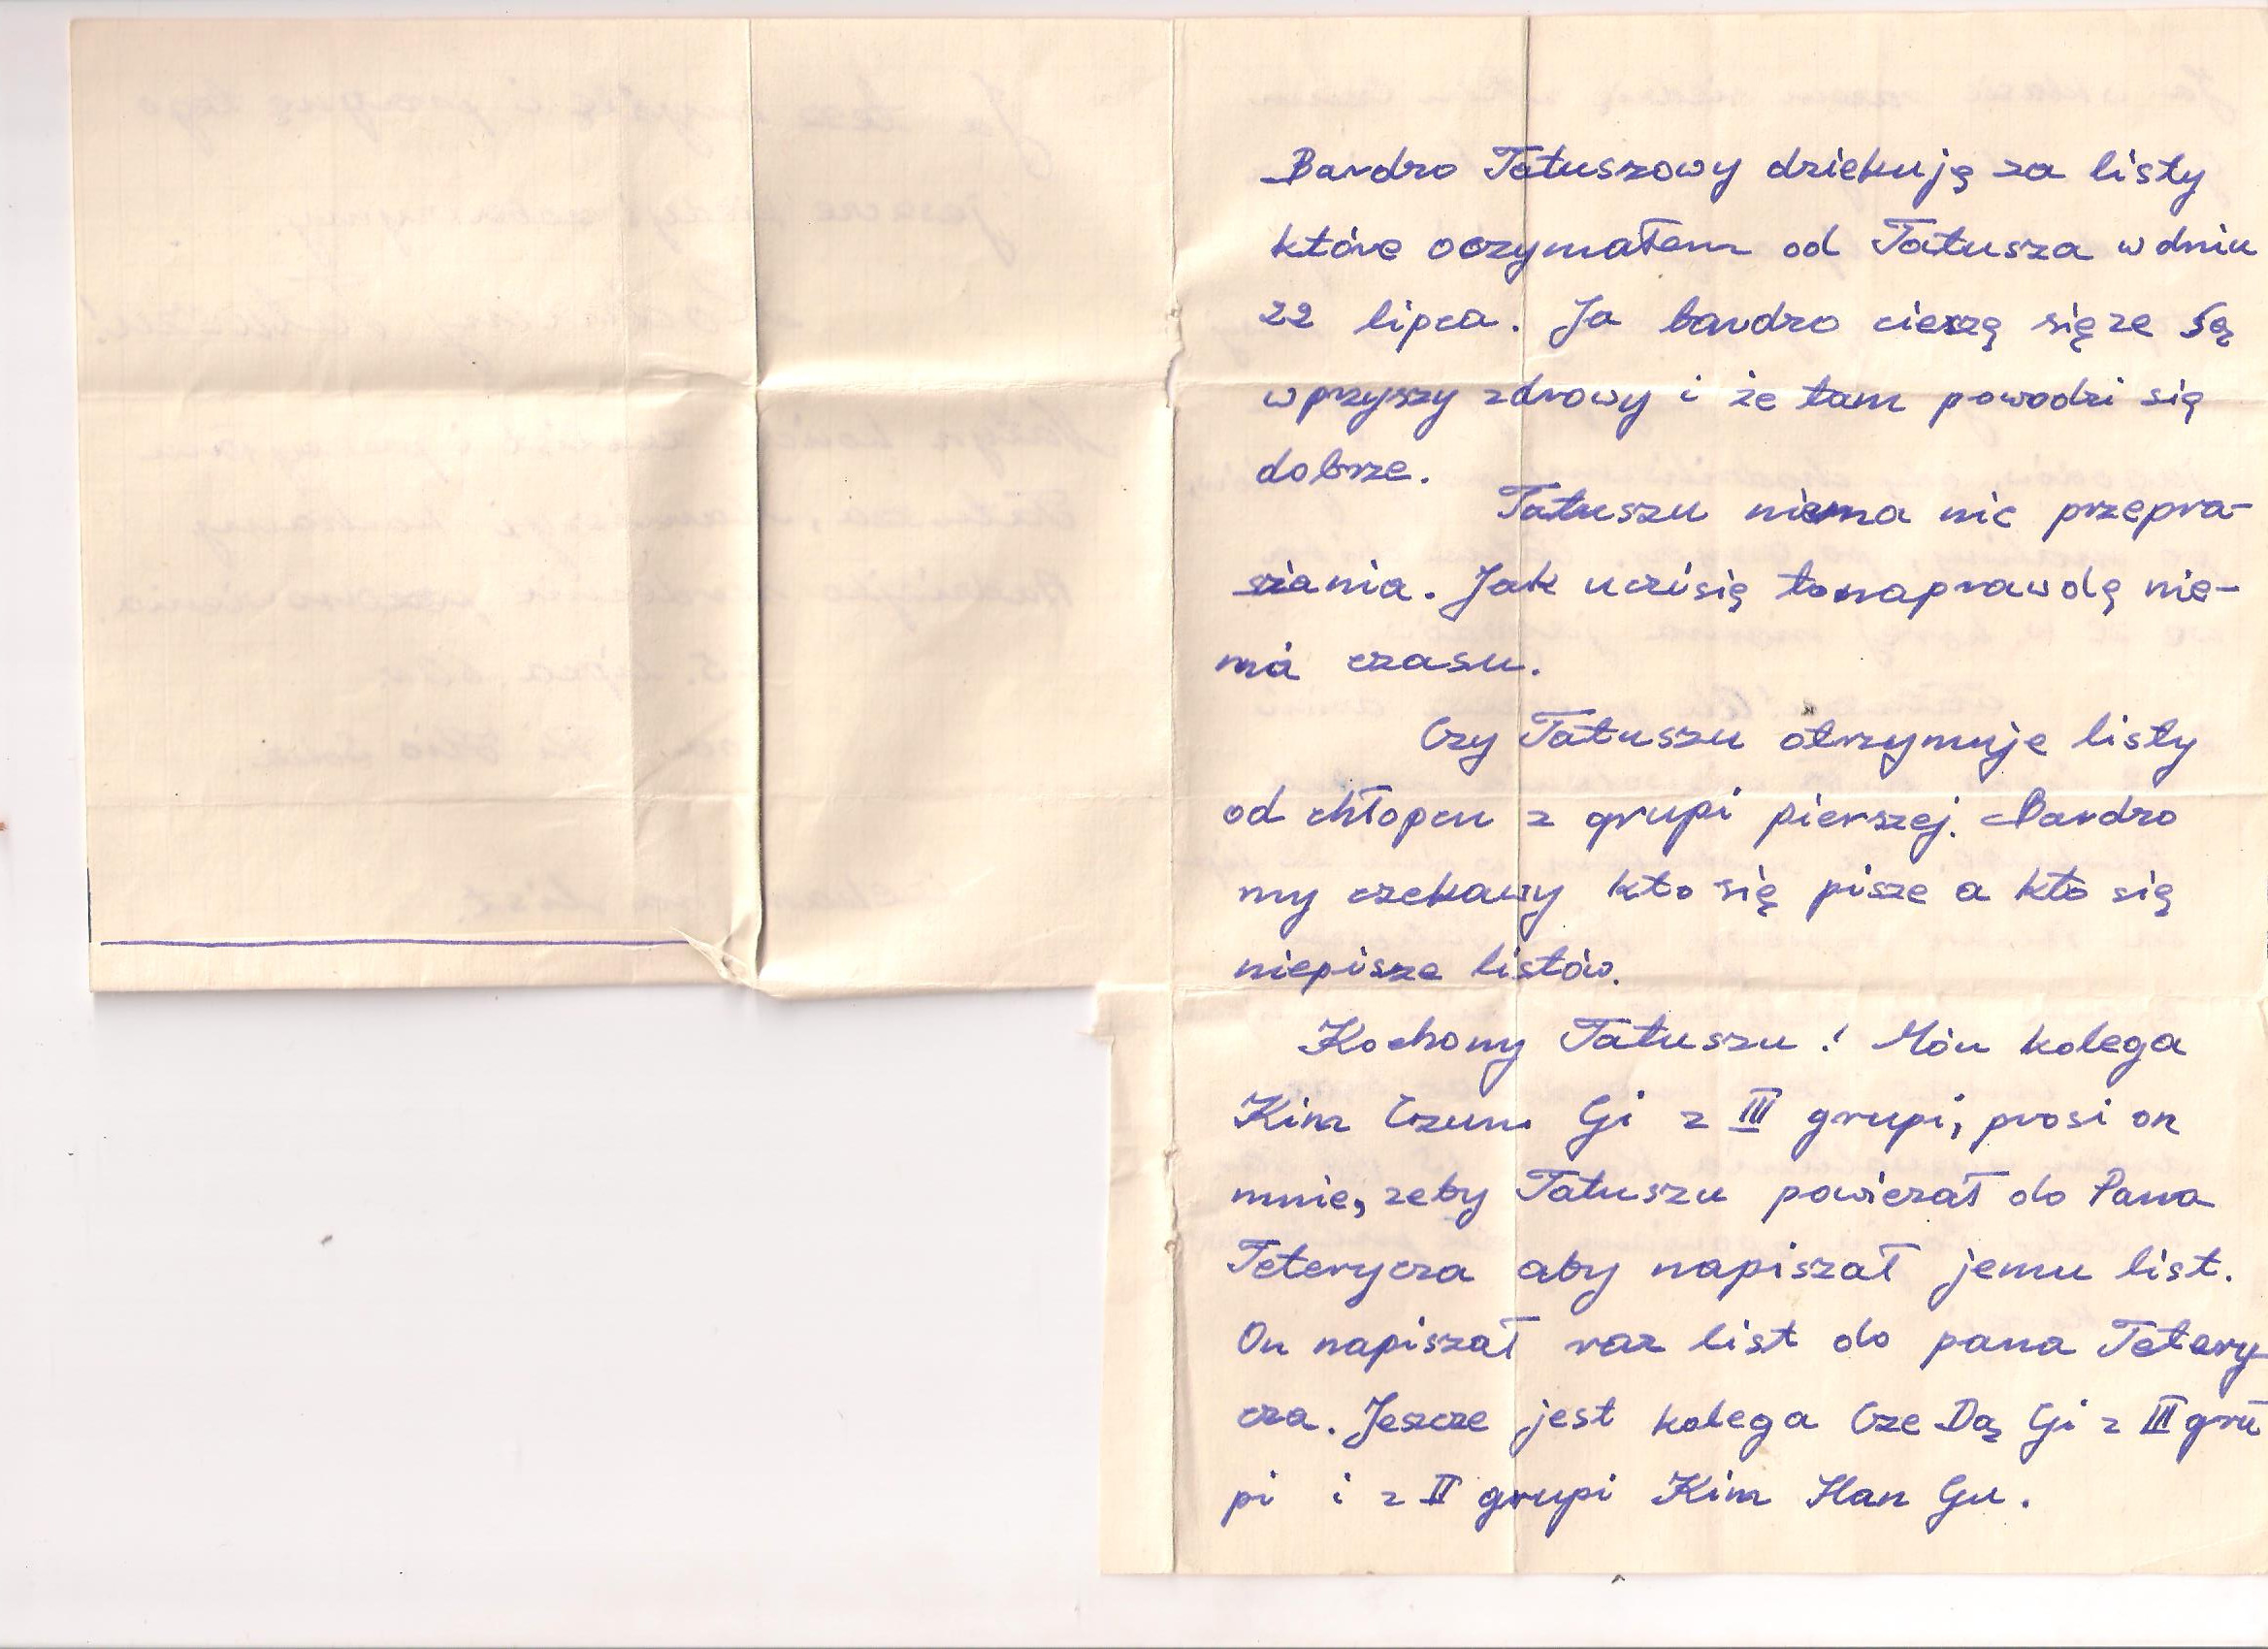 Bardro Tatuszowy dziekują za listy
które oczymałem od Tatusza w dniu
22 lipca. Ja bardro cieszą się ze są
wprzyszy zdrowy i że tam powodzi się
dobrze.
Tatuszu niema nic przepra-
szania. Jak uczisię tonaprawdę nie-
ma czasu.
Czy Tatuszu otrzymuje listy
od chłopcu z grupi pierszej. Bardro
my czekawy kto się pisze a kto się
niepisze listów.
Kochony Tatuszu! Món kolega
Kim Czum Gi z III grupi, prosi on
mnie, zeby Tatuszu powiezał do Pana
Teterycza aby napiszał jemu list.
On napiszał raz list do pana Tetery-
cza. Jeszcze jest kolega Cze Dą Gi z III gru
pi i z II grupi Kim Han Gu.